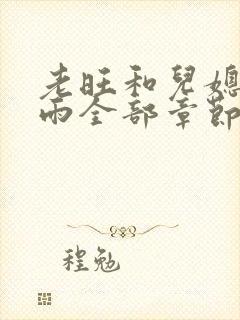 老旺和兒媳
雨全部章節
程勉